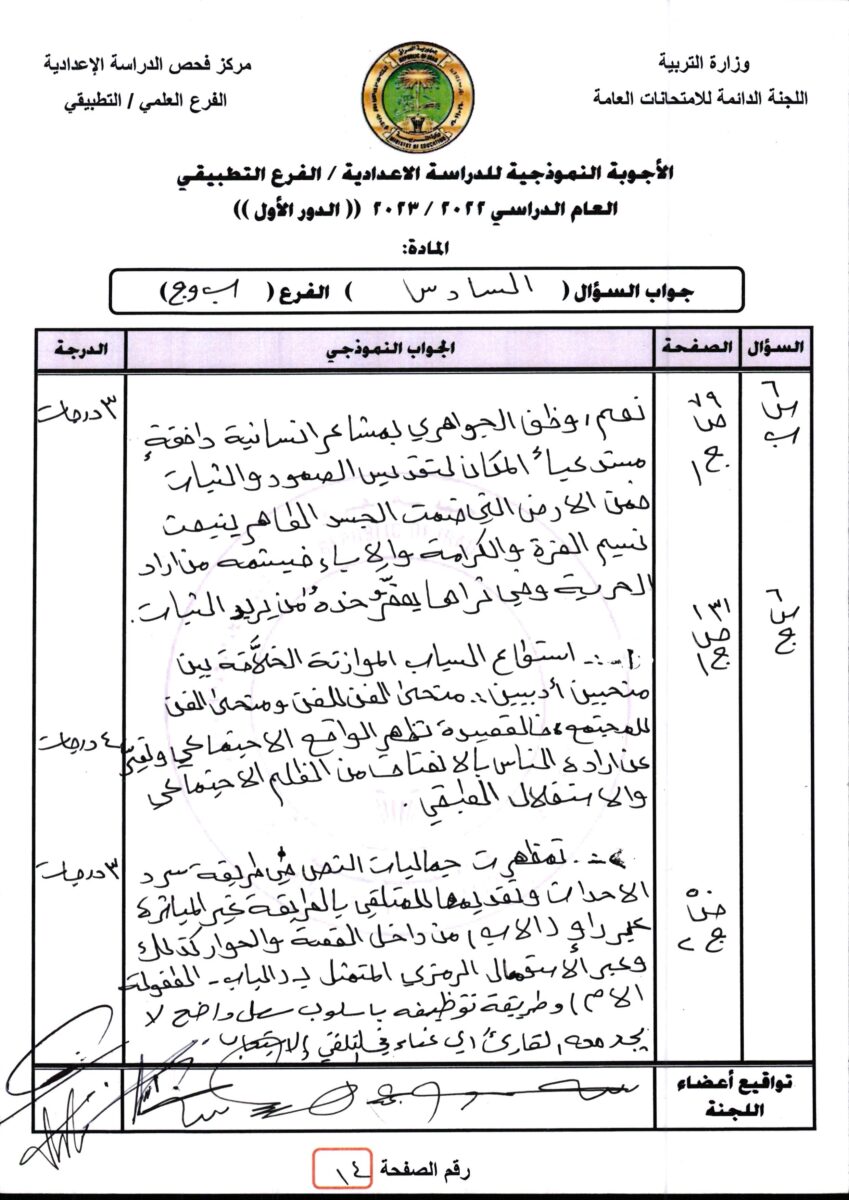 وزارة التربية
اللجنة الدائمة للامتحانات العامة
مركز فحص الدراسة الإعدادية
الفرع العلمي / التطبيقي
جمهورية العراق
REPUBLIC OF IRAQ
MINISTRY OF EDUCATION
الأجوبة النموذجية للدراسة الاعدادية / الفرع التطبيقي
العام الدراسي ٢٠٢٢ / ٢٠٢٣ (( الدور الأول ))
المادة:
جواب السؤال ( السادس ) الفرع ( ب وج )
السؤال الصفحة الجواب النموذجي الدرجة
س٦
ب
٧٩
ص
ج١
نعم، وظف الجواهري بمشاعر انسانية دافقة
مستدعياً المكان لتقديس الصمود والثبات
فمن الارض التي ضمت الجسد الطاهر ينبعث
نسيم العزة والكرامة والإباء فيشمه من اراد
الحرية وفي ثراها يعفّر خده من يريد الثبات.
٣ درجات
س٦
ج
١٣١
ص
ج١
١- استطاع السياب الموازنة الخلاّقة بين
منحيين أدبيين: منحى الفن للفن ومنحى الفن
للمجتمع، فالقصيدة تظهر الواقع الاجتماعي وتعبّر
عن ارادة الناس بالانعتاق من الظلم الاجتماعي
والاستغلال الطبقي.
٤ درجات
٥٠
ص
ج٢
٢- تمظهرت جماليات النص في طريقة سرد
الاحداث وتقديمها للمتلقي بالطريقة غير المباشرة
عبر راوٍ (الاب) من داخل القصة والحوار كذلك
وعبر الأستعمال الرمزي المتمثل بـ (الباب - الطفولة
الام) وطريقة توظيفه باسلوب سهل واضح لا
يجد معه القارئ أي عناء في التلقي والاستيعاب
٣ درجات
تواقيع أعضاء
اللجنة
رقم الصفحة ١٤